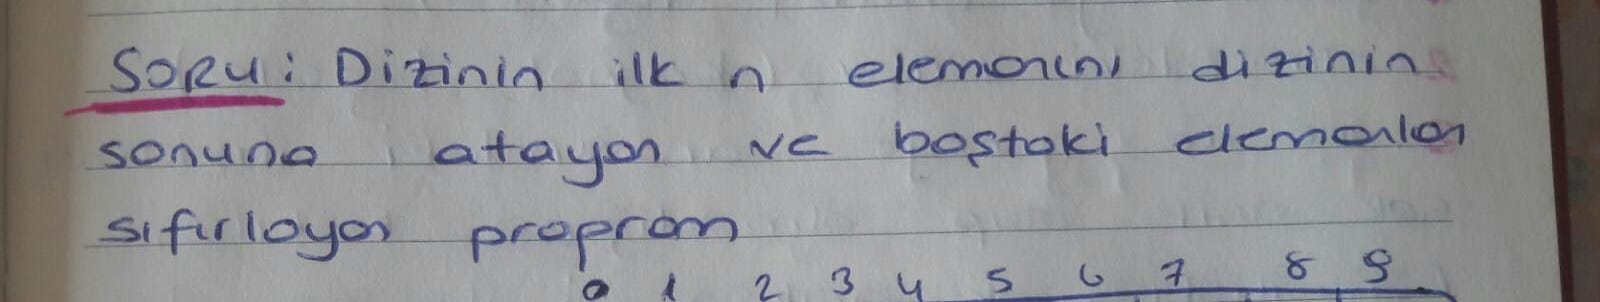 SORU: Dizinin ilk n elemanını dizinin
sonuna atayan ve baştaki elemanları
sıfırlayan program
0 1 2 3 4 5 6 7 8 9